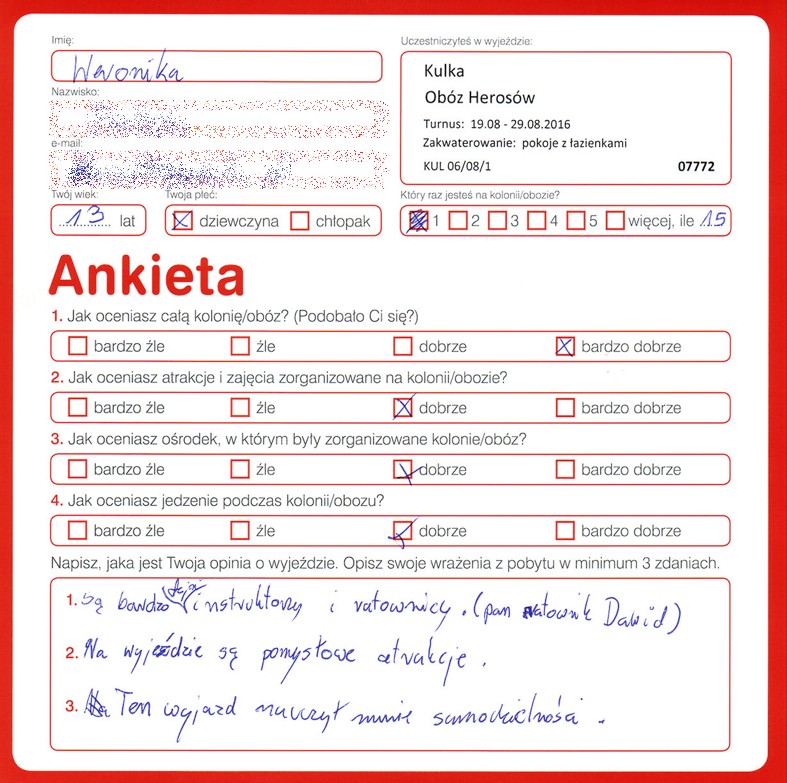 Imię:
Weronika
Nazwisko:
e-mail:
Twój wiek:
13 lat
Twoja płeć:
dziewczyna chłopak
Uczestniczyłeś w wyjeździe:
Kulka
Obóz Herosów
Turnus: 19.08 - 29.08.2016
Zakwaterowanie: pokoje z łazienkami
KUL 06/08/1 07772
Który raz jesteś na kolonii/obozie?
1 2 3 4 5 więcej, ile 15
Ankieta
1. Jak oceniasz całą kolonię/obóz? (Podobało Ci się?)
bardzo źle źle dobrze bardzo dobrze
2. Jak oceniasz atrakcje i zajęcia zorganizowane na kolonii/obozie?
bardzo źle źle dobrze bardzo dobrze
3. Jak oceniasz ośrodek, w którym były zorganizowane kolonie/obóz?
bardzo źle źle dobrze bardzo dobrze
4. Jak oceniasz jedzenie podczas kolonii/obozu?
bardzo źle źle dobrze bardzo dobrze
Napisz, jaka jest Twoja opinia o wyjeździe. Opisz swoje wrażenia z pobytu w minimum 3 zdaniach.
1. Są bardzo fajni instruktorzy i ratownicy. (pan ratownik Dawid)
2. Na wyjeździe są pomysłowe atrakcje.
3. Ten wyjazd nauczył mnie samodzielności.